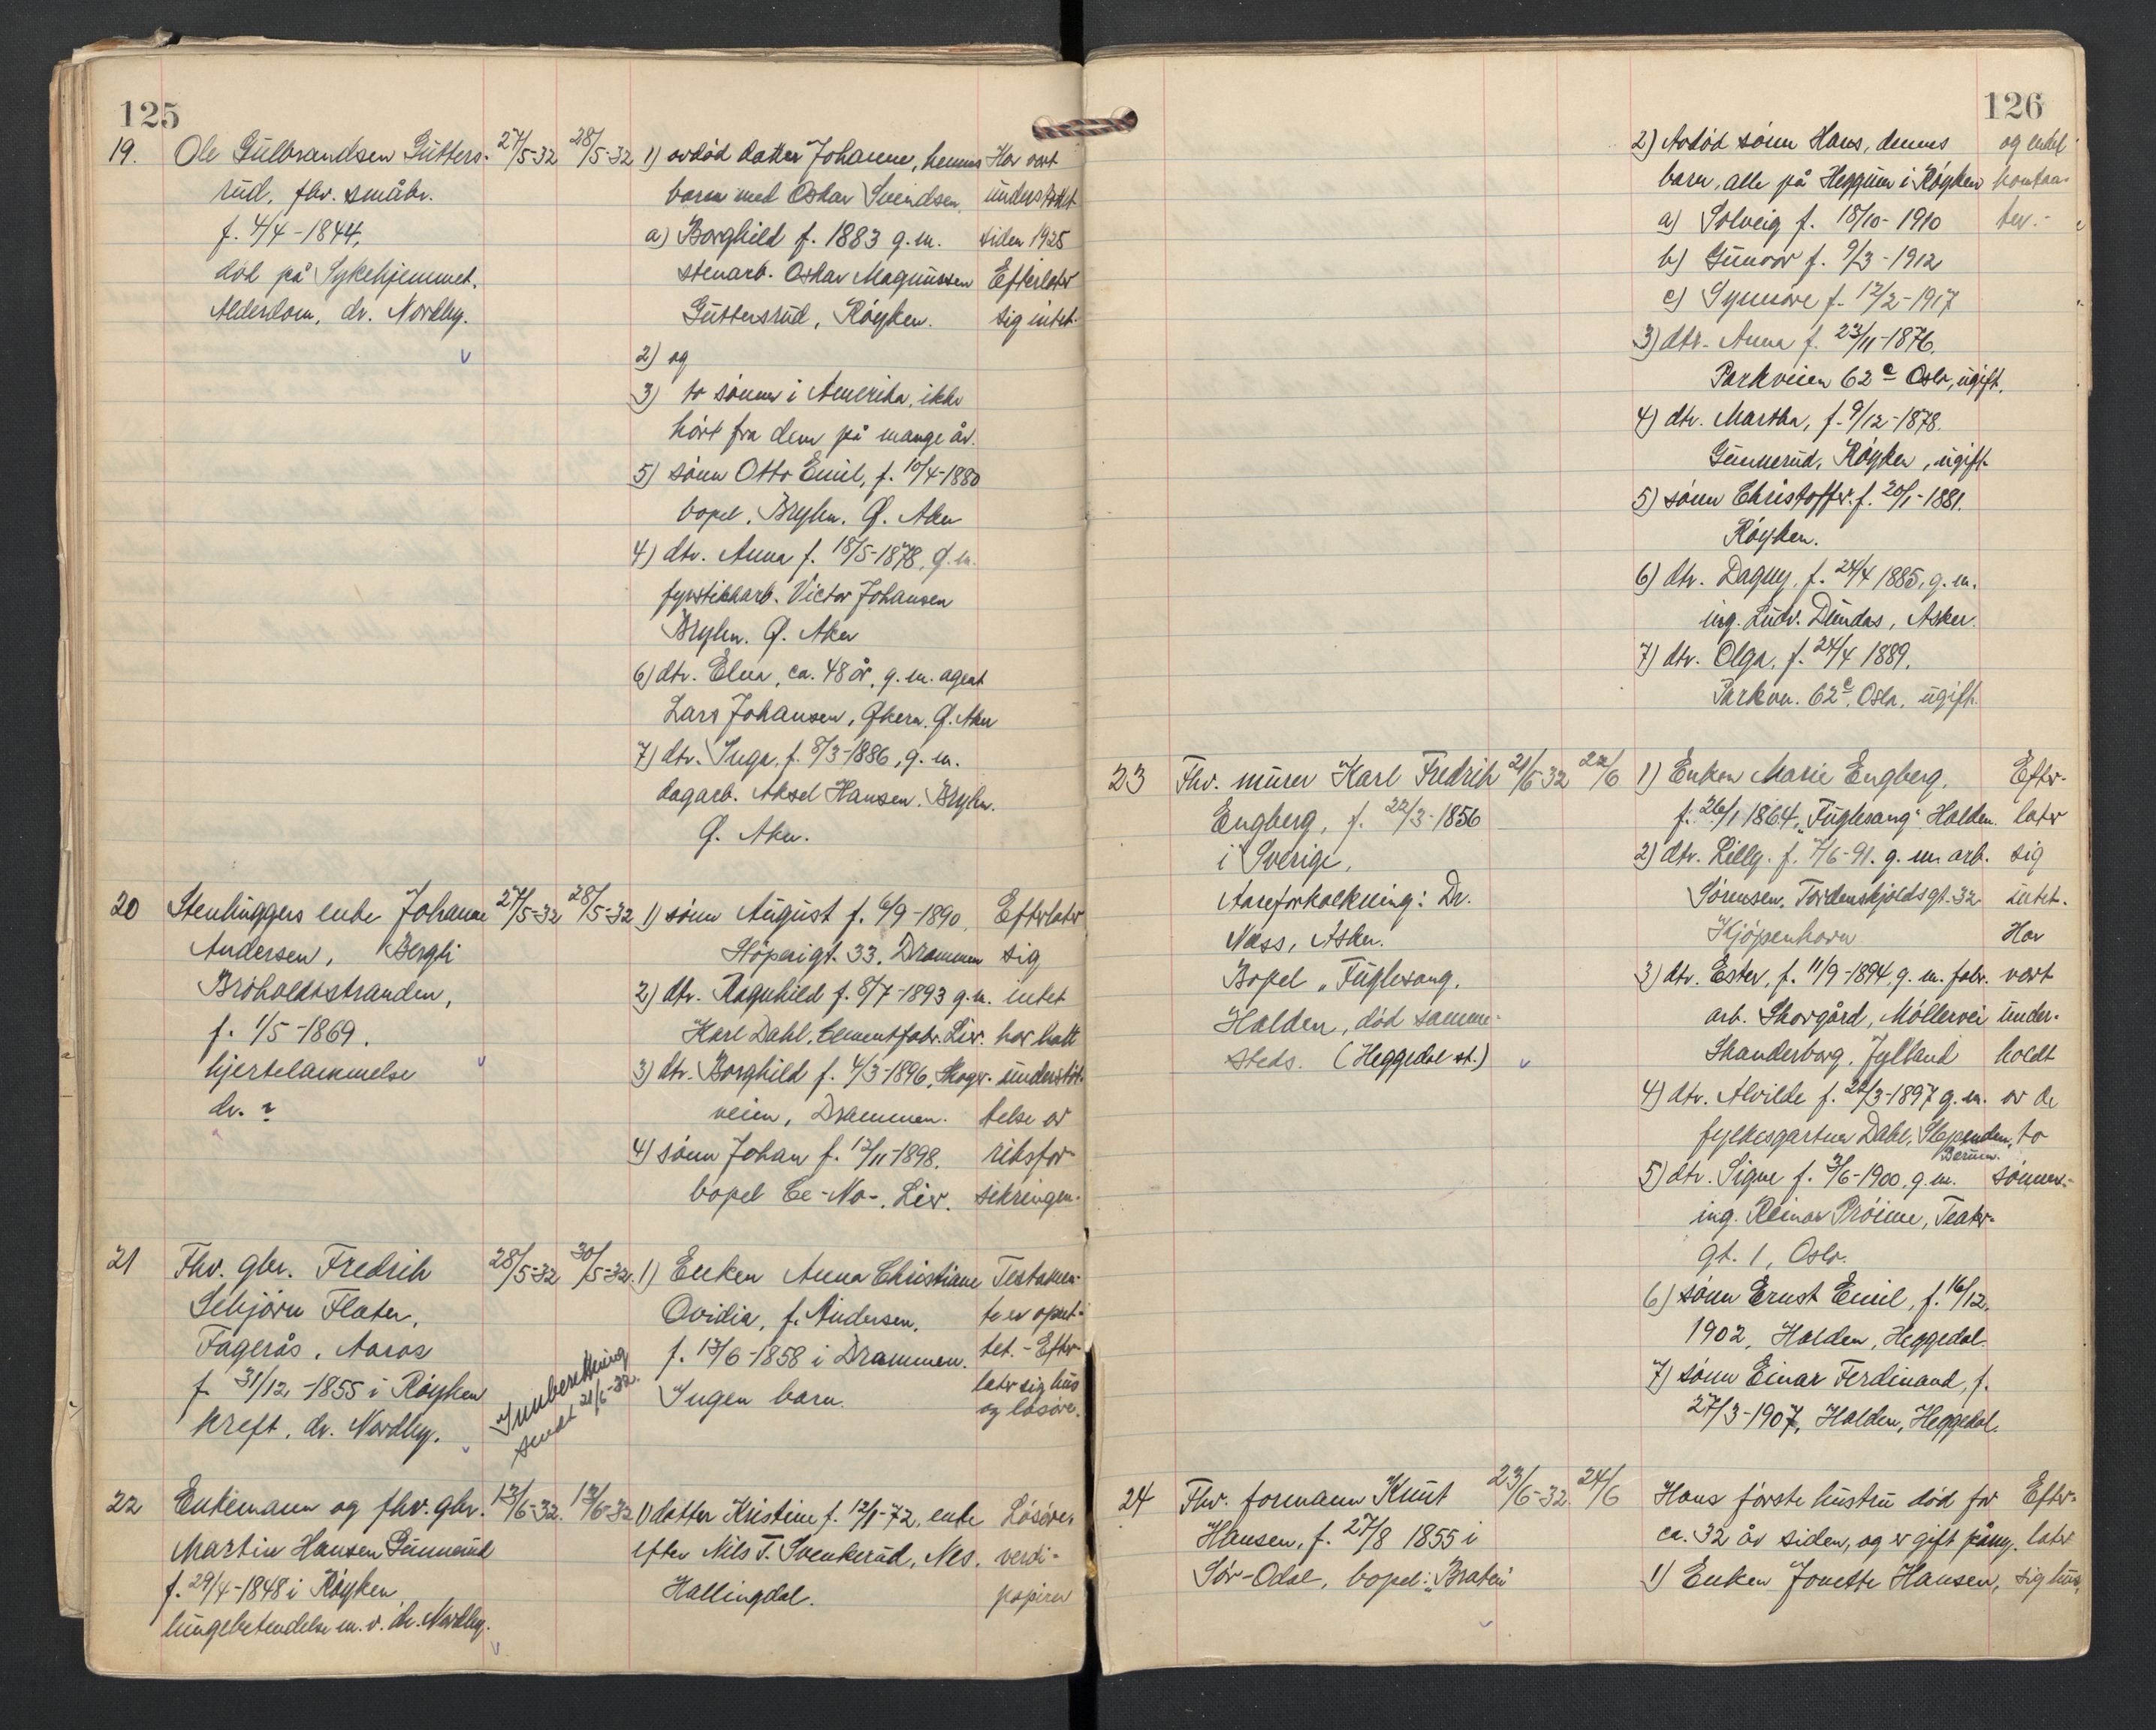 125
19. Ole Gulbrandsen Gutters-
rud, fhv. småbr.
f. 4/4-1844,
død på Sykehjemmet.
Alderdom, dr. Nordby.
27/5-32 28/5-32
1) avdød datter Johanne, hennes
barn med Oskar Svendsen.
a) Borghild f. 1883 g.m.
stenarb. Oskar Magnussen
Guttersrud, Røyken.
2) og
3) to sønner i Amerika, ikke
hørt fra dem på mange år.
5) sønn Otto Emil, f. 10/4-1880
bopel, Bryhn. Ø. Aker
4) dtr. Anna f. 18/5-1878, g.m.
fyrstikkarb. Victor Johansen
Bryhn. Ø. Aker
6) dtr. Elna, ca. 48 år, g.m. agent
Lars Johansen, Økern. Ø. Aker
7) dtr. Inga, f. 8/3-1886, g.m.
dagarb. Aksel Hansen. Bryhn.
Ø. Aker.
Har vært
understøttet
siden 1925
Efterlater
sig intet.
20 Stenhuggers enke Johanne
Andersen, Bergli
Bröholdtstranden,
f. 1/5-1869.
hjertelammelse
dr. ?
27/5-32 28/5-32
1) sønn August f. 6/9-1890,
33, Drammen
2) dtr. Ragnhild f. 8/7-1893 g.m.
Karl Dahl, Cementfabr. Lier.
3) dtr. Borghild f. 4/3-1896, Skoger-
veien, Drammen.
4) sønn Johan f. 12/11-1898.
bopel Ce-No-, Lier.
Efterlater
sig
intet
har hatt
understøt-
telse av
riksfor-
sikringen.
21 Fhv. gbr. Fredrik
Schjørn Flaten,
Fagerås, Aaros
f. 31/12-1855 i Røyken
kreft, dr. Nordby.
28/5-32 30/5-32.
Innberetning
sendt 21/6-32.
1) Enken Anna Christiane
Ovidia, f. Andersen,
f. 17/6-1858 i Drammen.
Ingen barn.
Testamen-
te er opret-
tet. - Efter-
later sig hus
og løsøre.
22 Enkemann og fhv. gbr.
Martin Hansen Gunnerud
f. 29/4-1848 i Røyken
lungebetendelse m.v. dr. Nordby.
13/6-32. 13/6-32
1) datter Kristine f. 12/1-72, enke
efter Nils T. Svenkerud, Nes,
Hallingdal.
Løsøre,
verdi-
papirer
126
2) Avdød sønn Hans, dennes
barn, alle på Heggum i Røyken
a) Solveig f. 18/10-1910
b) Gunvor f. 9/3-1912
c) Synnøve f. 12/2-1917
3) dtr. Anna f. 23/11-1876.
Parkveien 62c Oslo, ugift.
4) dtr. Martha, f. 9/12-1878.
Gunnerud, Røyken, ugift.
5) sønn Christoffer. f. 20/1-1881.
Røyken.
6) dtr. Dagny, f. 24/4 1885, g.m.
ing. Ludv. Dundas, Asker.
7) dtr. Olga, f. 24/4 1889.
Parkvn. 62c, Oslo, ugift.
og endel
kontan-
ter.-
23 Fhv. murer Karl Fredrik
Engberg, f. 22/3-1856
i Sverige,
Aareforkalkning: Dr.
Næss, Asker.
Bopel "Fuglesang,
Halden, død samme-
steds. (Heggedal st.)
21/6-32 22/6
1) Enken Marie Engberg,
f. 26/1 1864, "Fuglesang" Halden.
2) dtr. Lilly. f. 7/6-91. g.m. arb.
Sørensen, Tordenskjoldsgt. 32
Kjøpenhavn.
3) dtr. Ester, f. 11/9-1894, g.m. fabr.
arb. Skovgård, Møllervei
Skanderborg, Jylland
4) dtr. Alvilde f. 22/3-1897 g.m.
fylkesgartner Dahl, Slependen,
Bærum.
5) dtr. Signe f. 3/6-1900, g.m.
ing. Reinar Pröime, Teater-
gt. 1, Oslo.
6) sønn Ernst Emil, f. 16/12.
1902, Halden, Heggedal.
7) sønn Einar Ferdinand, f.
27/3-1907, Halden, Heggedal.
Efter-
later
sig
intet.
Har
vært
under-
holdt
av de
to
sønner.-
24 Fhv. formann Knut
Hansen, f. 27/8 1855 i
Sør-Odal, bopel: "Braten"
23/6-32. 24/6
Hans første hustru død for
ca. 32 år siden, og er gift påny.
1) Enken Jonette Hansen,
Efter-
later
sig hus,